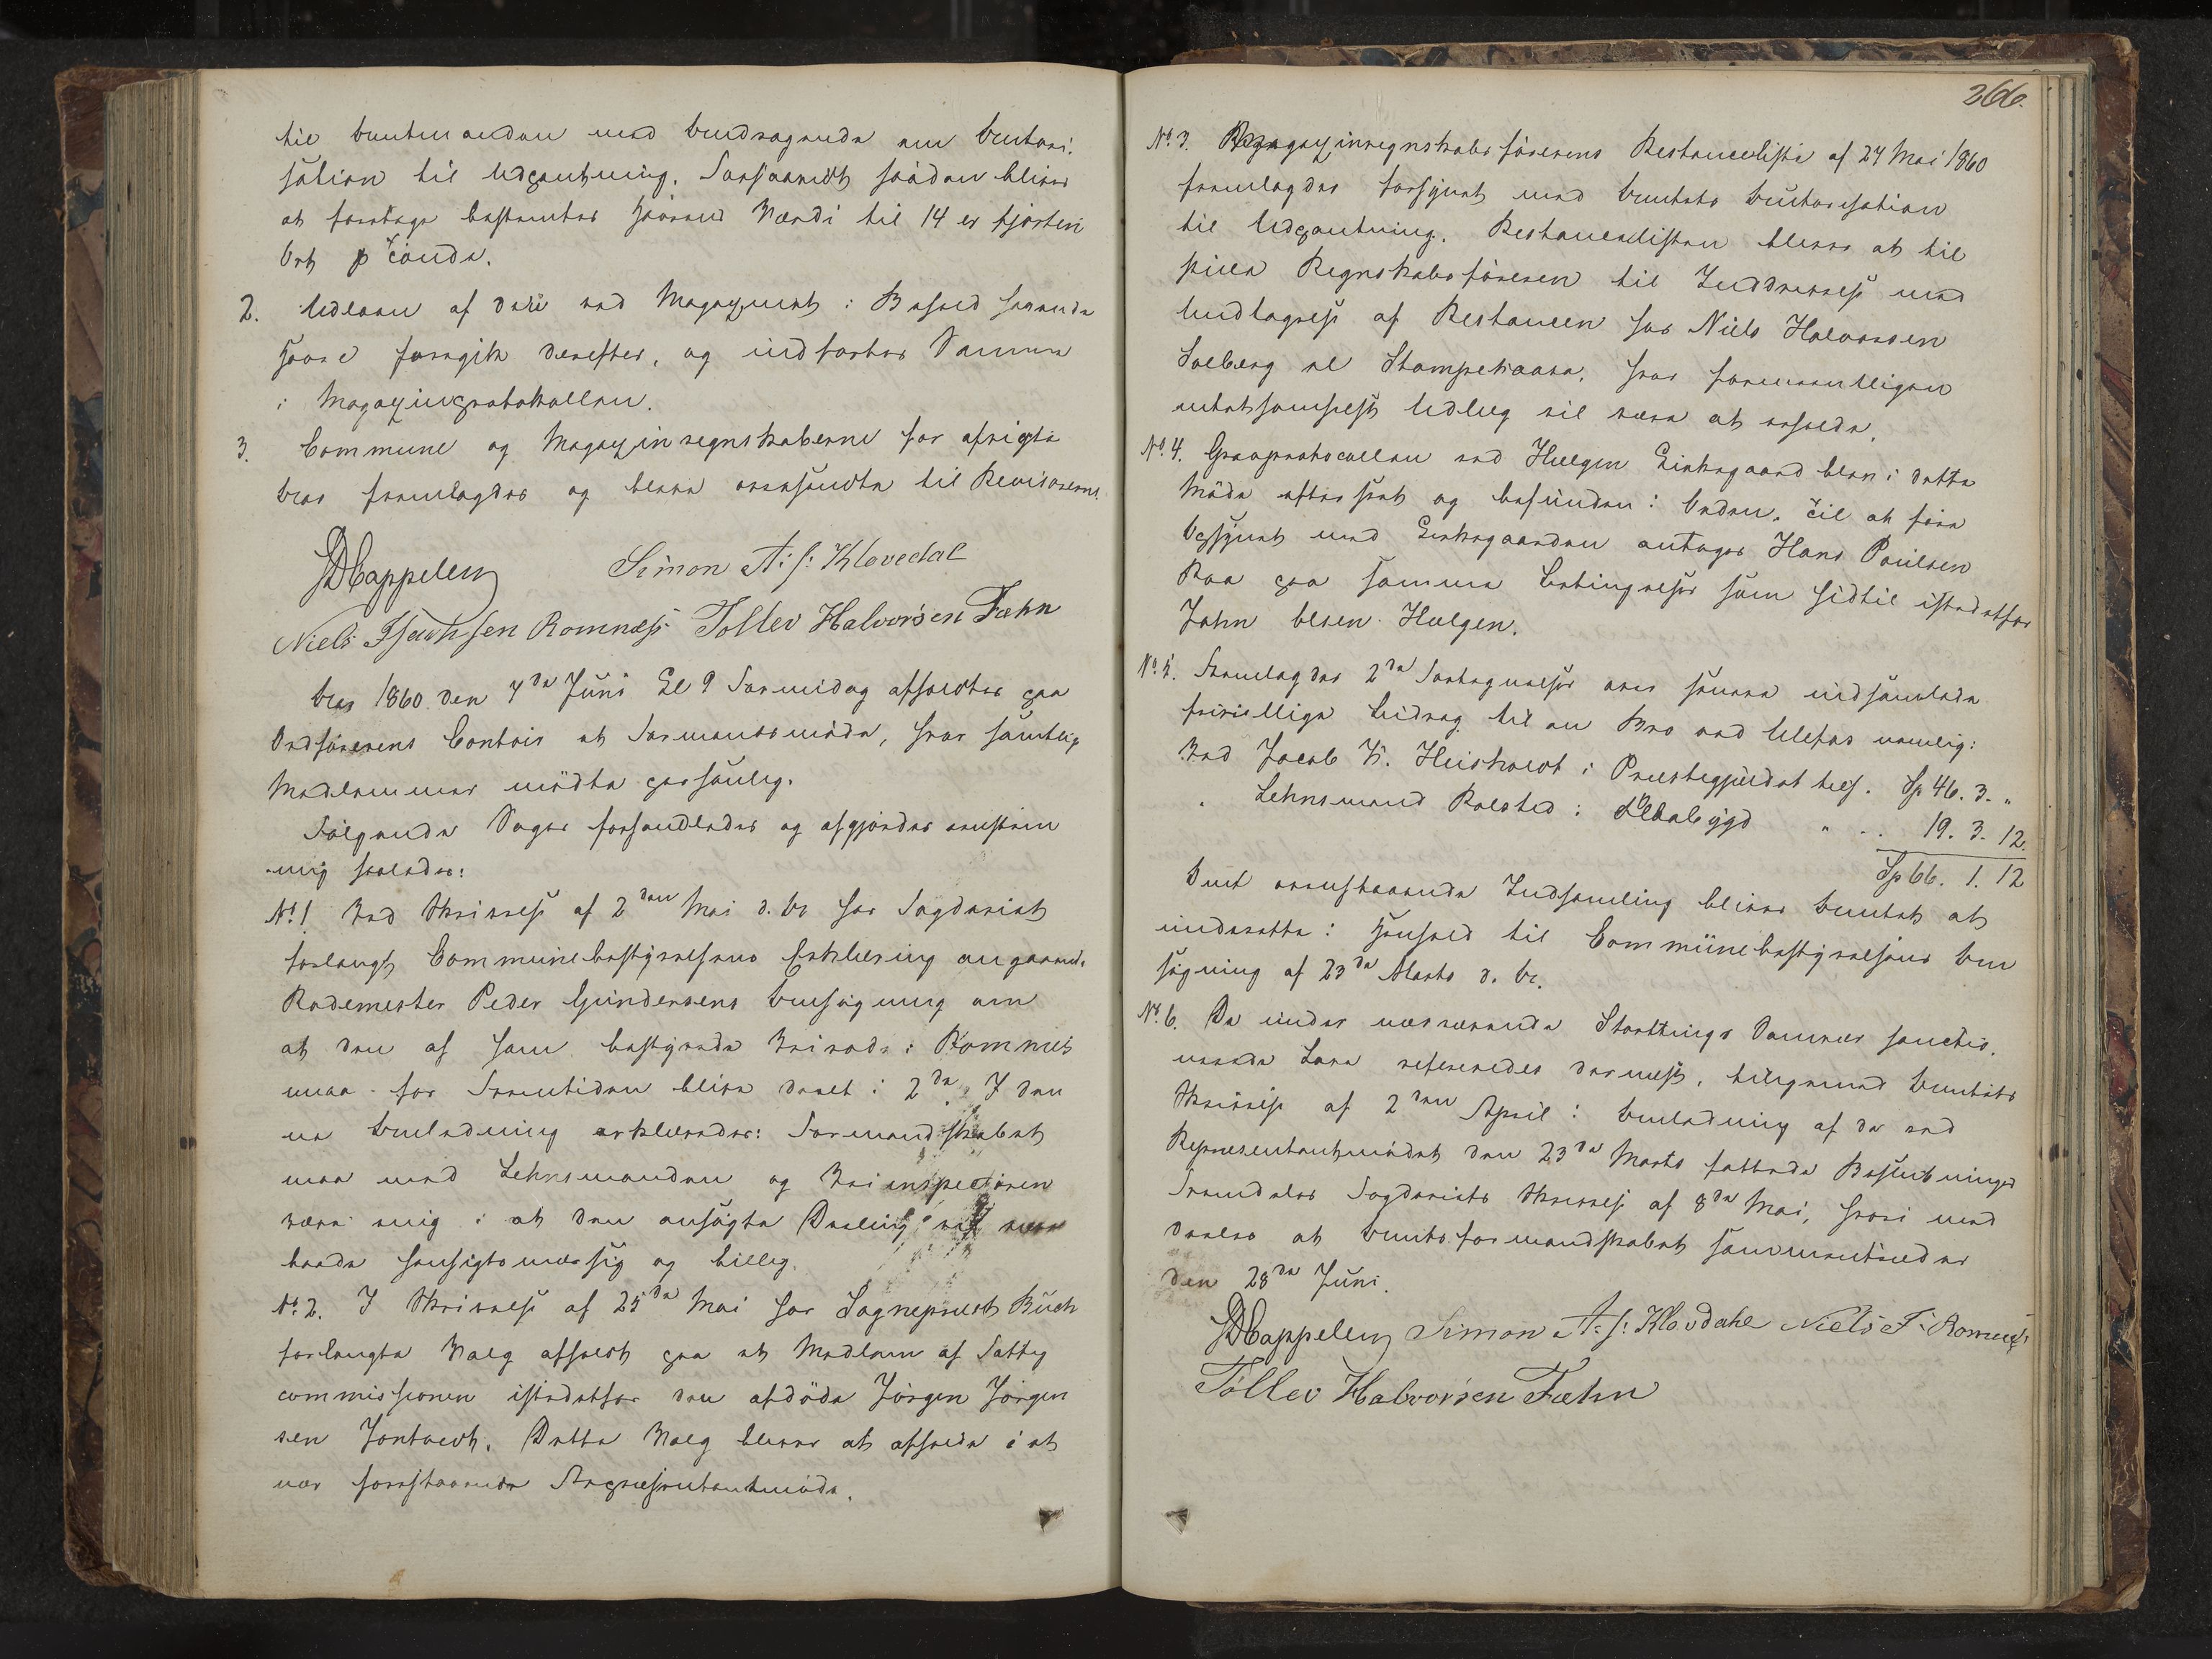 til Amtmanden med Andragende om Autori-
sation til Udpantning. Forsaavidt saadan bliver
at foretage bestemtes Havrens Værdi til 14 er fjorten
Ort pr Tönde.
2. Udlaan af det ved Magazinet i Behold havende
Havre foregik derefter, og indførtes Samme
i Magazinprotokollen.
3. Commune og Magazinregnskaberne for afvigte
Aar fremlagdes og bleve oversendte til Revisorerne.
DCappelen Simon A: S: Klovedal
Niels Isachsen Romnæss Tollev Halvorsen Fæhn
Aar 1860 den 7de Juni Kl 9 Formidag afholdtes paa
Ordförerens Contoir et Formandsmöde, hvor samtlige
Medlemmer mödte personlig.
Fölgende Sager forhandledes og afgjordes overstem-
mig saaledes:
No 1. Ved Skrivelse af 2den Mai d. Ar har Fogderiet
forlangt Communebestyrelsens Erklæring angaaende
Rodemester Peder Gundersens Ansögning om
at den af ham bestyrede Veirode i Romnes
maa for Fremtiden blive deelt i 2de. I den
ne Anledning erklæredes: Formandskabet
maa med Lehnsmanden og Veiinspectören
være enig i at den ansögte Deeling vil være
baade hensigtsmæssig og billig.
No 2. I Skrivelse af 25de Mai har Sogneprest Buch
forlangte Valg afholdt paa et Medlem af Fattig
commissionen istedetfor den afdöde Jörgen Jörgen
sen Jontvedt. Dette Valg bliver at afholde i et
nær forestaaende Repræsentantmöde.
266.
No. 3. Magazinregnskabsförerens Restanceliste af 24 Mai 1860
fremlagdes forsynet med Amtets Autorisation
til Udpantning. Restancelisten bliver at til
stille Regnskabsföreren til Inddrivelse med
Undtagelse af Restancen hos Niels Halvorsen
Solberg el Stampekaasa, hvor formeentligen
intetsomhelst Udlæg vil være at erholde.
No. 4. Gravprotocollen ved Hælgen Kirkegaard blev i dette
Möde efterseet og befunden i Orden. Til at före
Opsynet med Kirkegaarden antages Hans Poulsen
Raa paa samme Betingelser som hidtil istedetfor
John Olsen Hælgen.
No. 5. Fremlagdes 2de Fortegnelser over henne indsamlede
frivillige Bidrag til en Bro ved Ulefos nemlig:
Ved Jacob K. Heisholdt i Præstegjeldet tils. Sp 46. 3. "
" Lehnsmand Rolsted i Flaabygd " .. 19. 3. 12.
Sp 66. 1. 12
Om ovenstaaende Indsamling bliver Amtet at
underrette i Henhold til Communebestyrelsens An
sögning af 23de Marts d. Ar.
No. 6. De under nærværende Storthings Samvær sanctio-
nerede Love refereredes dernæst, ligesaa Amtets
Skrivelse af 2den April i Anledning af de ved
Repræsentantmödet den 23de Marts fattede Beslutninger
Fremdeles Fogderiets Skrivelse af 8de Mai, hvori med
deeles at Amtsformandskabet sammentræder
den 28de Juni.
DCappelen Simon A: S: Klovdahl Niels I: Romnæss
Tollev Halvorsen Fæhn